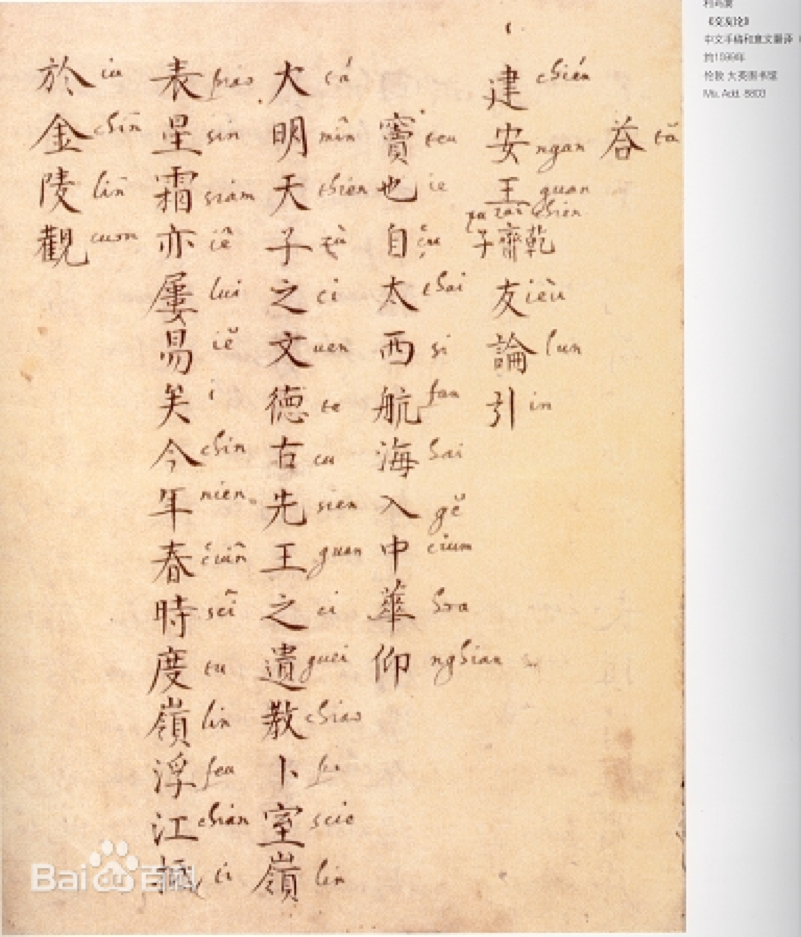 利玛窦
《交友论》
中文手稿和意文翻译（
约1599年
伦敦 大英图书馆
Ms. Add. 8803
荅 tă
建 chién 安 ngan 王 guan 乾 chien 齋 zai 子 友 ièu 論 lun 引 in
竇 teu 也 ie 自 太 thai 西 si 航 han 海 hai 入 gĕ 中 cium 華 hoa 仰 nghian
大 tá 明 mîn 天 thien 子 zù 之 ci 文 uen 德 te 古 cu 先 sien 王 guan 之 ci 遺 guei 教 chiao 卜 室 scie 嶺 lin
表 piao 星 sin 霜 siam 亦 iĕ 屢 lui 易 iĕ 矣 i 今 chin 年 nien 春 ciuñ 時 scî 度 tu 嶺 lin 浮 feu 江 chian 抵 ti
於 iu 金 chin 陵 lin 觀 cuon
Bai du 百科